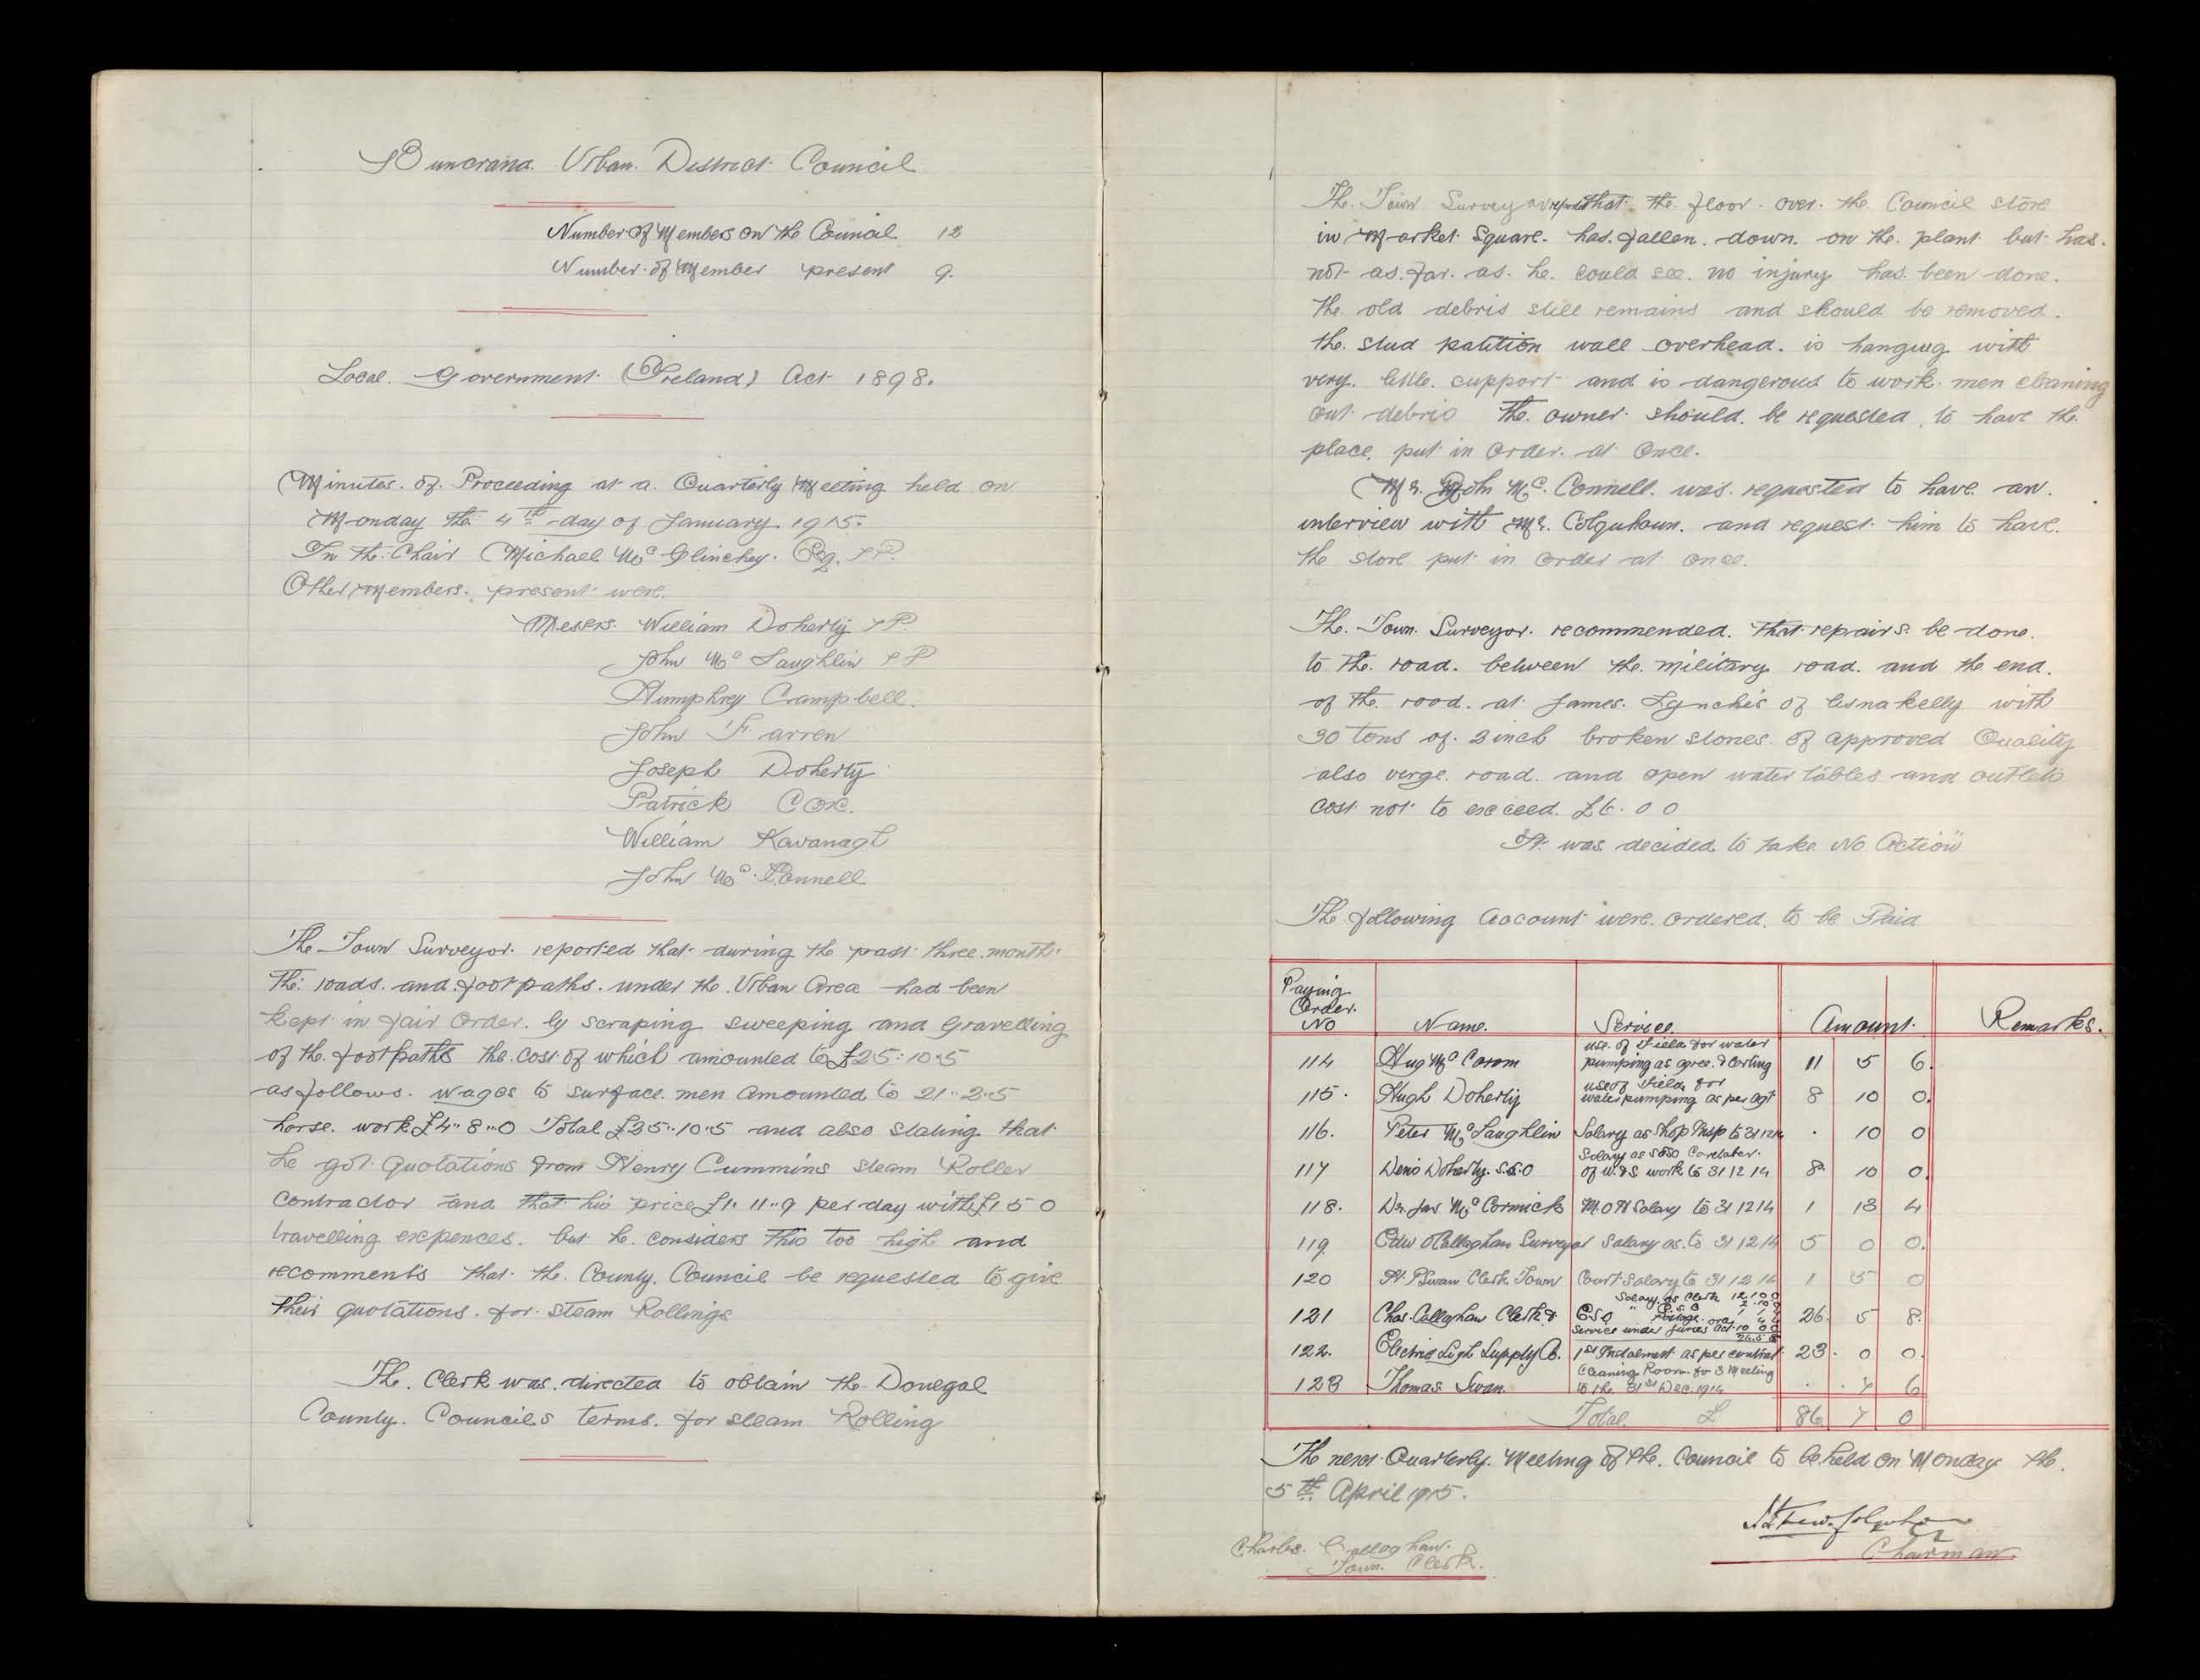 Buncrana. Urban. District. Council
Number of Members on the Council 12
Number of Member present 9.
Local Government (Ireland) Act 1898.
Minutes. of. Proceeding at a Quarterly Meeting held on
Monday the 4th day of January 1915.
In the Chair Michael McGlinchey. Esq. J.P.
Other Members. present were.
Messrs. William Doherty JP
John McLaughlin JP
Humphrey Campbell.
John Farren
Joseph Doherty
Patrick Cox.
William Kavanagh
John McConnell
The Town Surveyor. reported that during the past three month.
The roads. and footpaths. under the Urban Area had been
kept in fair Order. by scraping sweeping and gravelling
of the footpaths the cost of which amounted to £25:10.5
as follows. wages to surface men amounted to 21..2.5
horse. work £4..8..0 Total £25..10.5 and also stating that
he got quotations from Henry Cummins steam Roller
contractor and that his price £1. 11..9 per day with £1 5 0
travelling expences. but he considers this too high and
recomments that the County Council be requested to give
their quotations. for steam Rollings
The Clerk was directed to obtain the Donegal
County. Councils terms. for steam Rolling
The Town Surveyor reported that the floor over the Council store
in Market Square. has fallen down on the plant but has.
not as far as he could see. no injury has been done.
the old debris still remains and should be removed.
the stud patition wall overhead. is hanging with
very little support and is dangerous to work men cleaning
out debris the owner should be requested to have the
place put in order at once.
Mr. John McConnell was requested to have an.
interview with Mr. Colquhoun. and request him to have.
the store put in order at once.
The Town Surveyor. recommended. that repairs be done.
to the road. between the military road. and the end.
of the road. at James. Lynch's of Lisnakelly with
30 tons of 2 inch broken stones of approved Quality
also verge road. and open water tables and outlets
cost not to exceed. £6. 0 0
It was decided to take No Action"
The following Account were ordered to be Paid
Paying Order. No Name. Service. Amount. Remarks.
114 Hug McCorom use of field for water pumping as agree. & Carting 11 5 6.
115. Hugh Doherty use of field for water pumping as per agt 8 10 0.
116. Peter McLaughlin Salary as Shop Insp to 31 12 14 . 10 0
117 Denis Doherty. S.S.O Salary as SSO Caretaker. of W.&S. work to 31 12 14 8. 10 0.
118. Dr. Jas McCormick M.O.H Salary to 31 12 14 1 13 4
119 Edw OCallaghan Surveyor Salary as. to 31 12 14 5 0 0.
120 H. P Swan Clerk Town Court Salary to 31 12 14 1 5 0
121 Chas. Callaghan Clerk & ESO Salary as Clerk 12 10 0 Postage Service under Juries act 10 0 0 26.5.8 26. 5 8.
122. Electric Ligh Supply Co. 1st Instalment as per contrat 23. 0 0.
123 Thomas Swan. Cleaning Room for 3 Meeting to the 31st Dec. 1914 . 7 6
Total £ 86 7 0
The next Quarterly. Meeting of the. Council to be held on Monday the.
5th April 1915.
Charles. Callaghan.
Town. Clerk.
Chairman